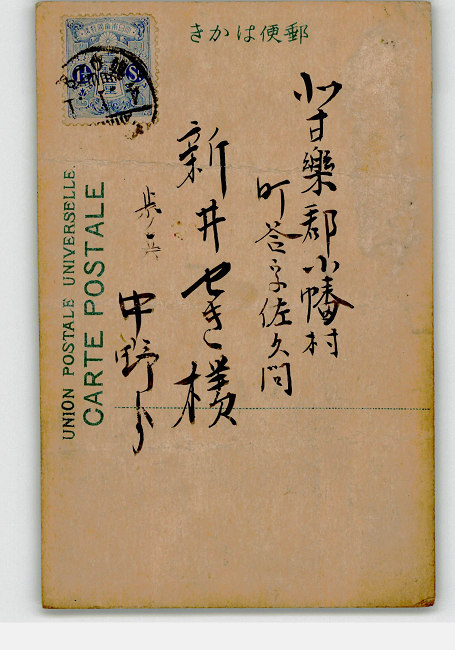 郵便はかき
北甘樂郡小幡村
町谷字佐久間
新井せき様
歩兵
中野より
UNION POSTALE UNIVERSELLE.
CARTE POSTALE
1½ Sn